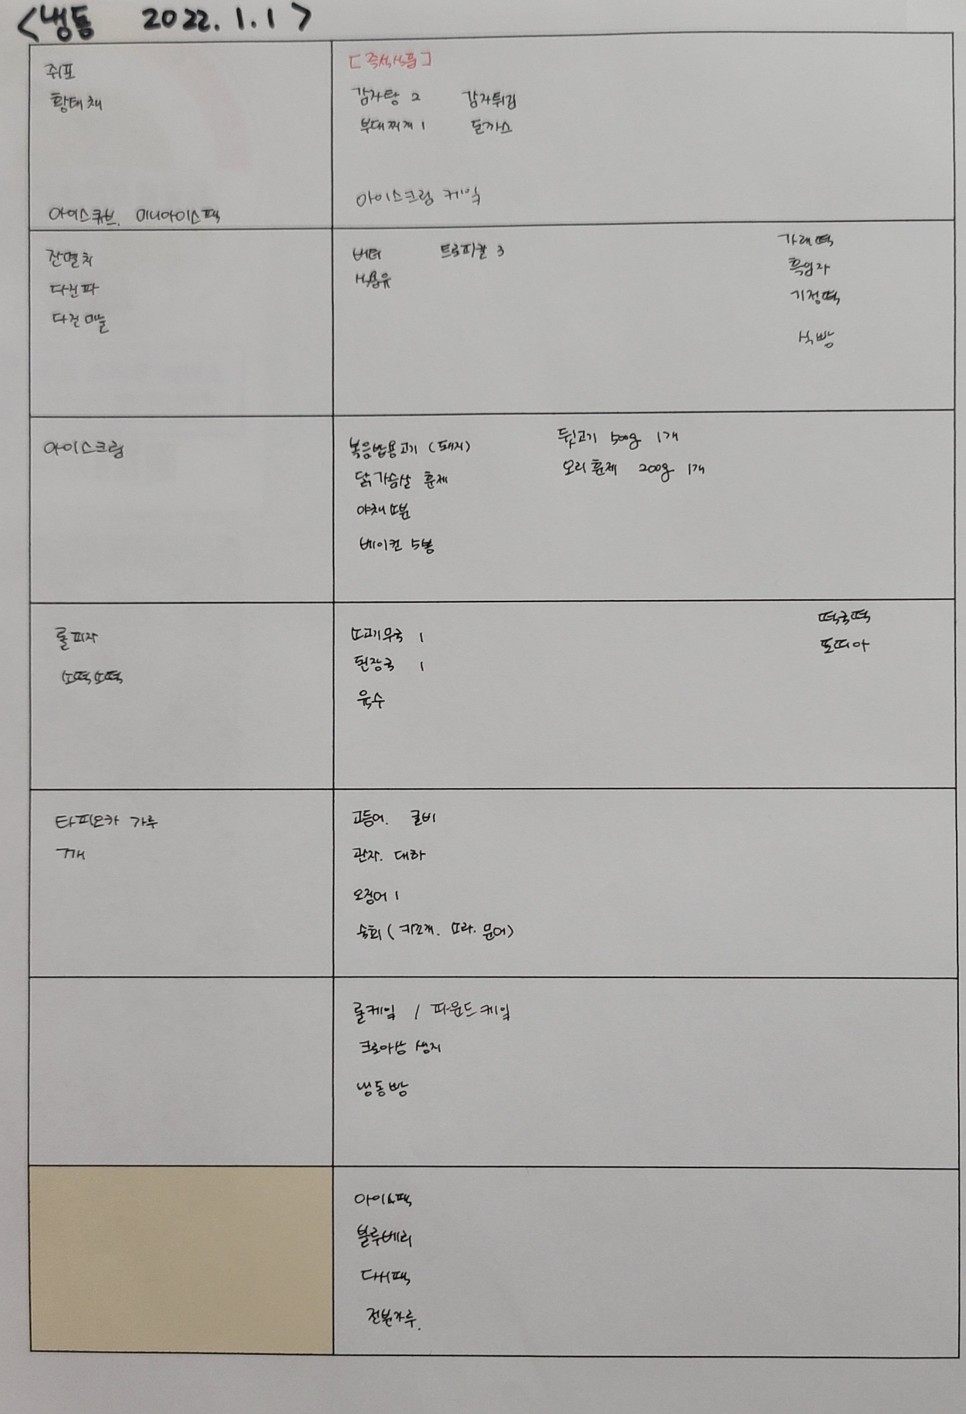 <냉동 2022.1.1>
쥐포
황태채
아이스큐브. 미니아이스팩
[즉석식품]
감자탕 2 감자튀김
부대찌개 1 돈까스
아이스크림 케익
잔멸치
다진파
다진마늘
버터 트로피칼 3
식용유
가래떡
흑임자
기정떡
식빵
아이스크림
볶음밥용고기 (돼지) 뒷고기 500g 1개
닭가슴살 훈제 오리훈제 200g 1개
야채
베이컨 5봉
롤피자
소떡소떡
소고기무국 1
된장국 1
육수
떡국떡
또띠아
타피오카 가루
깨
고등어. 굴비
관자. 대하
오징어 1
숙회 (키조개. 소라. 문어)
롤케잌 / 파운드케잌
크로아상 생지
냉동빵
아이스팩
블루베리
다시팩
전분가루.